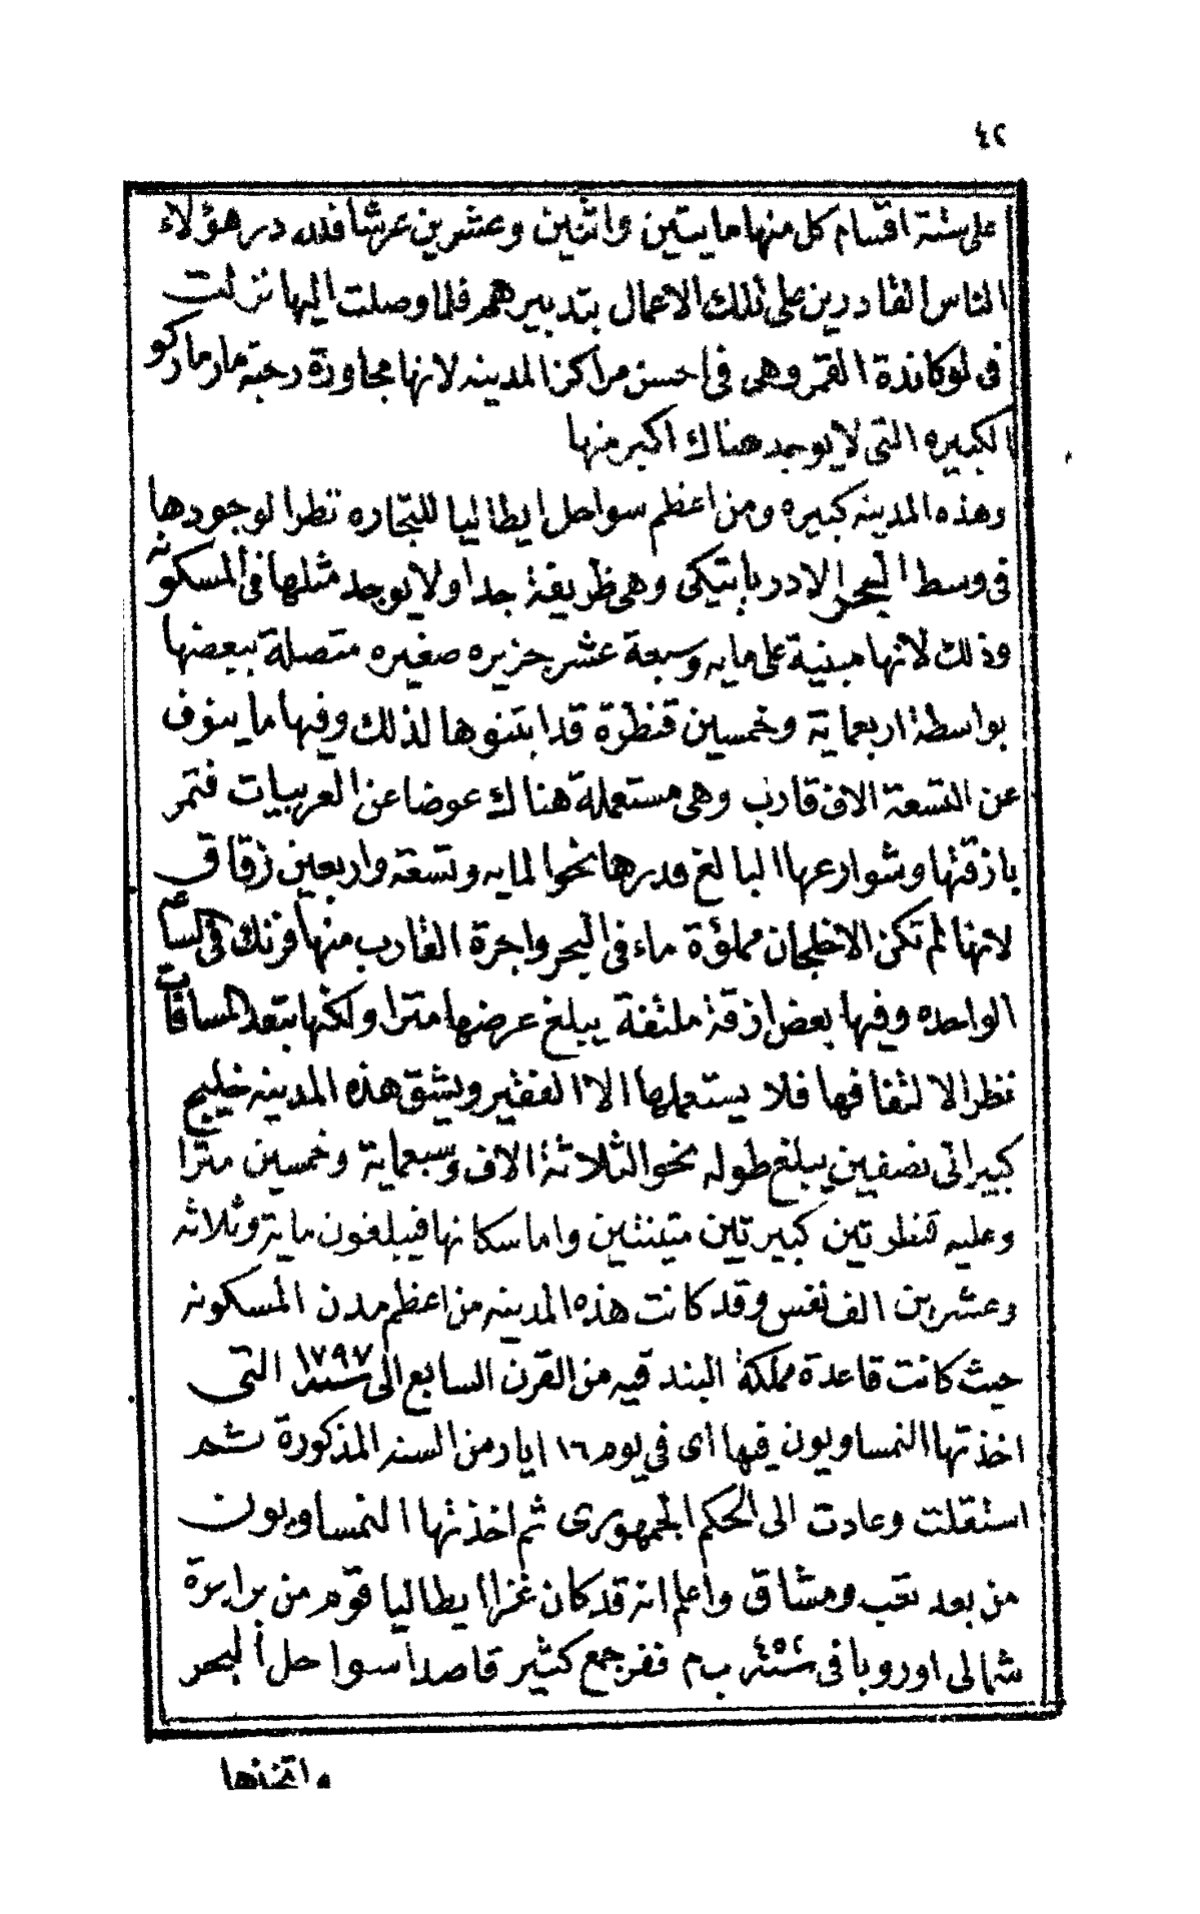 ٤٢
على ستة اقسام كل منها مايتين واثنين وعشرين عرشا فلله در هؤلاء
الناس القادرين على تلك الاعمال بتدبيرهم فلما وصلت اليها نزلت
فى لوكاندة القمر وهى فى احسن مراكز المدينه لانها مجاورة رحبة مار ماركو
الكبيره التى لا يوجد هناك اكبر منها
وهذه المدينه كبيره ومن اعظم سواحل ايطاليا للتجاره نظرا لوجودها
فى وسط البحر الادرياتيكى وهى ظريفة جدا ولا يوجد مثلها فى المسكونه
وذلك لانها مبنية على مايه وسبعة عشر جزيره صغيره متصلة ببعضها
بواسطة اربعماية وخمسين قنطرة قد ابتنوها لذلك وفيها ما ينوف
عن التسعة الاف قارب وهى مستعملة هناك عوضا عن العربيات فتمر
بازقتها وشوارعها البالغ قدرها نحو المايه وتسعة واربعين زقاق
لانها لم تكن الاخلجان مملؤة ماء فى البحر واجرة القارب منها فرنك فى الساعه
الواحده وفيها بعض ازقة ملتفة يبلغ عرضها مترا ولكنها تبعد المسافات
نظرا لالتفافها فلا يستعملها الا الفقير ويشق هذه المدينه خليج
كبير الى نصفين يبلغ طوله نحو الثلاثة الاف وسبعماية وخمسين مترا
وعليه قنطرتين كبيرتين متينتين واما سكانها فيبلغون ماية وثلاثه
وعشرين الف نفس وقد كانت هذه المدينه من اعظم مدن المسكونه
حيث كانت قاعدة مملكة البندقيه من القرن السابع الى سنة ١٧٩٧ التى
اخذتها النمساويون فيها اى فى يوم ١٦ ايار من السنه المذكورة ثم
استقلت وعادت الى الحكم الجمهورى ثم اخذتها النمساويون
من بعد تعب ومشاق واعلم انه قد كان غزا ايطاليا قوم من برابرة
شمالى اوروبا فى سنة ٤٥٢ ب م ففر جمع كثير قاصدا سواحل البحر
واتخذها